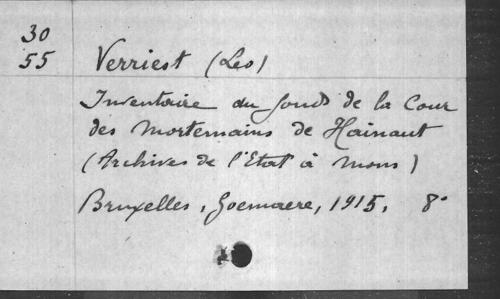 30
55
Verriest (Leo)
Inventaire du fonds de la Cour
des Mortemains de Hainaut
(Archives de l'Etat à Mons)
Bruxelles, Goemaere, 1915, 8°